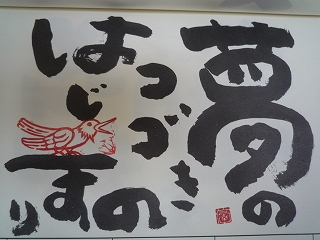 夢の
つづきの
はじまり